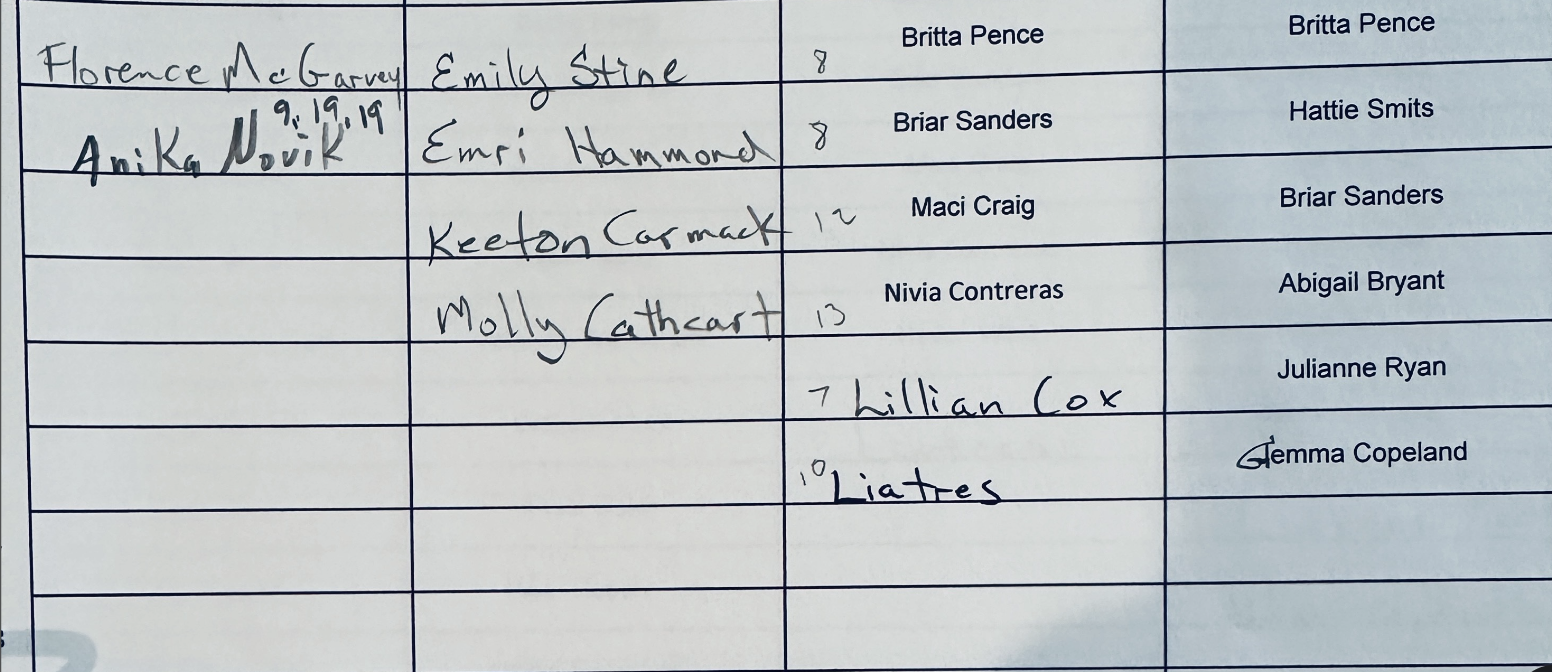 Florence McGarvey Emily Stine 8 Britta Pence Britta Pence
9, 19, 19
Anika Novik Emri Hammond 8 Briar Sanders Hattie Smits
Keeton Carmack 12 Maci Craig Briar Sanders
Molly Cathcart 13 Nivia Contreras Abigail Bryant
7 Lillian Cox Julianne Ryan
10 Liatres Gemma Copeland